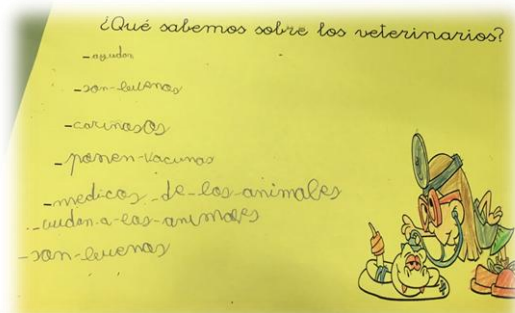 ¿Qué sabemos sobre los veterinarios?
- ayudan
- son-buenos
- cariñosos
- ponen-vacunas
- medicos-de-los-animales
- cuidan-a-los-animales
- son-buenos